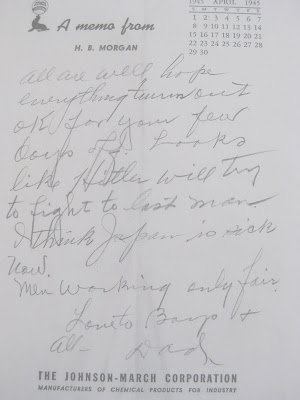 1945 APRIL 1945
S M T W T F S
1 2 3 4 5 6 7
8 9 10 11 12 13 14
15 16 17 18 19 20 21
22 23 24 25 26 27 28
29 30
A memo from
H. B. MORGAN
All are well hope
everything turns out
OK for your few
Days off. Looks
like Hitler will try
to fight to last man
I think Japan is sick
now.
Men working only fair.
Love to Boys &
All - Dad
THE JOHNSON-MARCH CORPORATION
MANUFACTURERS OF CHEMICAL PRODUCTS FOR INDUSTRY